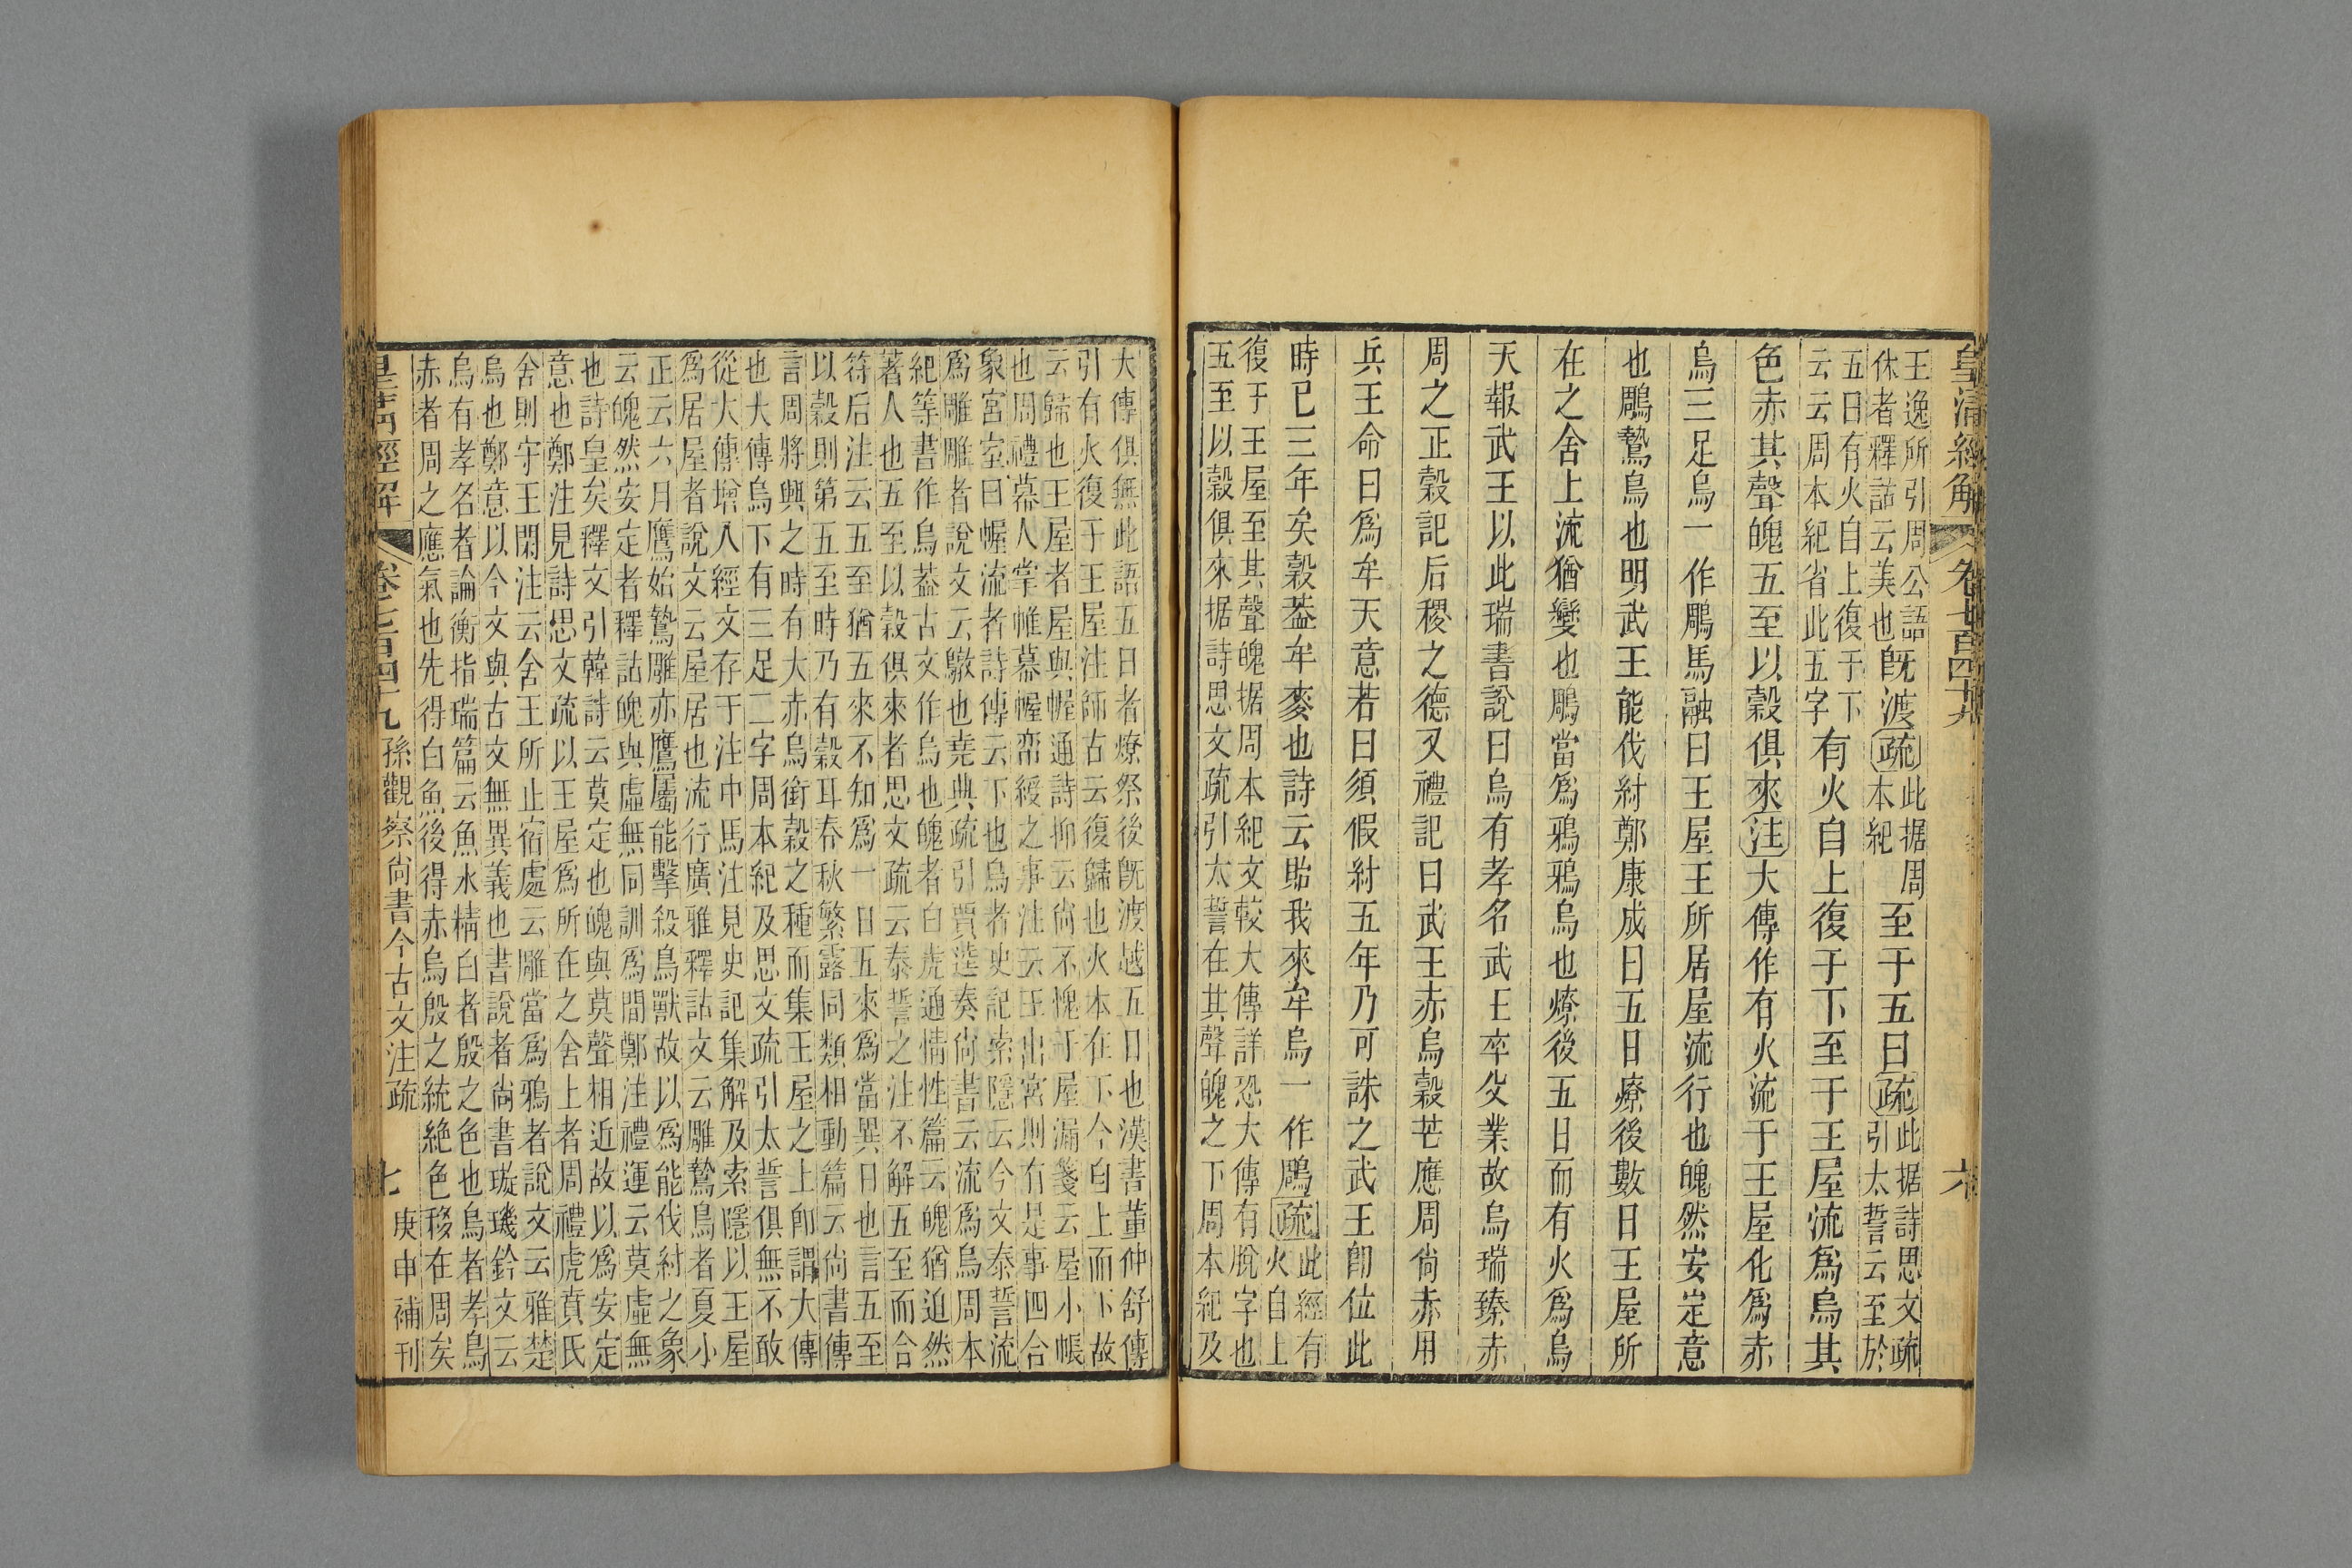 皇清經解 卷七百四十九 六
王逸所引周公語
休者釋詁云美也
既渡疏
此据周
本紀
至于五日疏
此据詩思文疏
引太誓云至於
五日有火自上復于下
云云周本紀省此五字
有火自上復于下至于王屋流爲烏其
色赤其聲魄五至以穀俱來注大傳作有火流于王屋化爲赤
烏三足烏一作鵰馬融曰王屋王所居屋流行也魄然安定意
也鵰鷙鳥也明武王能伐紂鄭康成曰五日燎後數日王屋所
在之舍上流猶變也鵰當爲鴉鴉烏也燎後五日而有火爲烏
天報武王以此瑞書說曰烏有孝名武王卒父業故烏瑞臻赤
周之正穀記后稷之德又禮記曰武王赤烏穀芒應周尚赤用
兵王命曰爲牟天意若曰須假紂五年乃可誅之武王卽位此
時已三年矣穀葢牟麥也詩云貽我來牟烏一作鵰疏
此經有
火自上
復于王屋至其聲魄据周本紀文較大傳詳恐大傳有脫字也
五至以穀俱來据詩思文疏引太誓在其聲魄之下周本紀及
大傳俱無此語五日者燎祭後既渡越五日也漢書董仲舒傳
引有火復于王屋注師古云復歸也火本在下今自上而下故
云歸也王屋者屋與幄通詩抑云尚不愧于屋漏箋云屋小帳
也周禮幕人掌帷幕幄帟綬之事注云王出宮則有是事四合
象宮室曰幄流者詩傳云下也烏者史記索隱云今文泰誓流
爲雕雕者說文云鷻也堯典疏引賈逵奏尚書云流爲烏周本
紀等書作烏葢古文作烏也魄者白虎通情性篇云魄猶迫然
著人也五至以穀俱來者思文疏云泰誓之注不解五至而合
符后注云五至猶五來不知爲一日五來爲當異日也言五至
以穀則第五至時乃有穀耳春秋繁露同類相動篇云尚書傳
言周將興之時有大赤烏銜穀之種而集王屋之上卽謂大傳
也大傳烏下有三足二字周本紀及思文疏引太誓俱無不敢
從大傳增入經文存于注中馬注見史記集解及索隱以王屋
爲居屋者說文云屋居也流行廣雅釋詁文云雕鷙鳥者夏小
正云六月鷹始鷙雕亦鷹屬能擊殺鳥獸故以爲能伐紂之象
云魄然安定者釋詁魄與虛無同訓爲間鄭注禮運云莫虛無
也詩皇矣釋文引韓詩云莫定也魄與莫聲相近故以爲安定
意也鄭注見詩思文疏以王屋爲所在之舍上者周禮虎賁氏
舍則守王閑注云舍王所止宿處云雕當爲鴉者說文云雅楚
烏也鄭意以今文與古文無異義也書說者尚書璇璣鈐文云
烏有孝名者論衡指瑞篇云魚水精白者殷之色也烏者孝鳥
赤者周之應氣也先得白魚後得赤烏殷之統絶色移在周矣
皇清經解 卷七百四十九 孫觀察尚書今古文注疏 七 庚申補刊